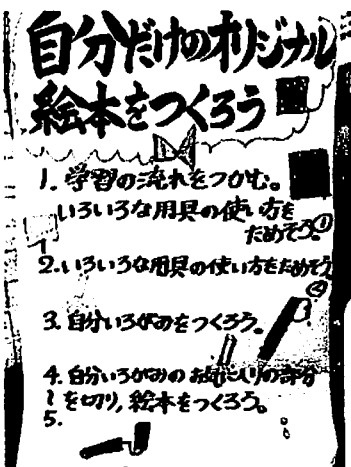 自分だけのオリジナル
絵本をつくろう
1. 学習の流れをつかむ。
いろいろな用具の使い方を
ためそう。①
2. いろいろな用具の使い方をためそう
②
3. 自分いろがみをつくろう。
4. 自分いろがみのお気に入りの部分
〜を切り, 絵本をつくろう。
5.